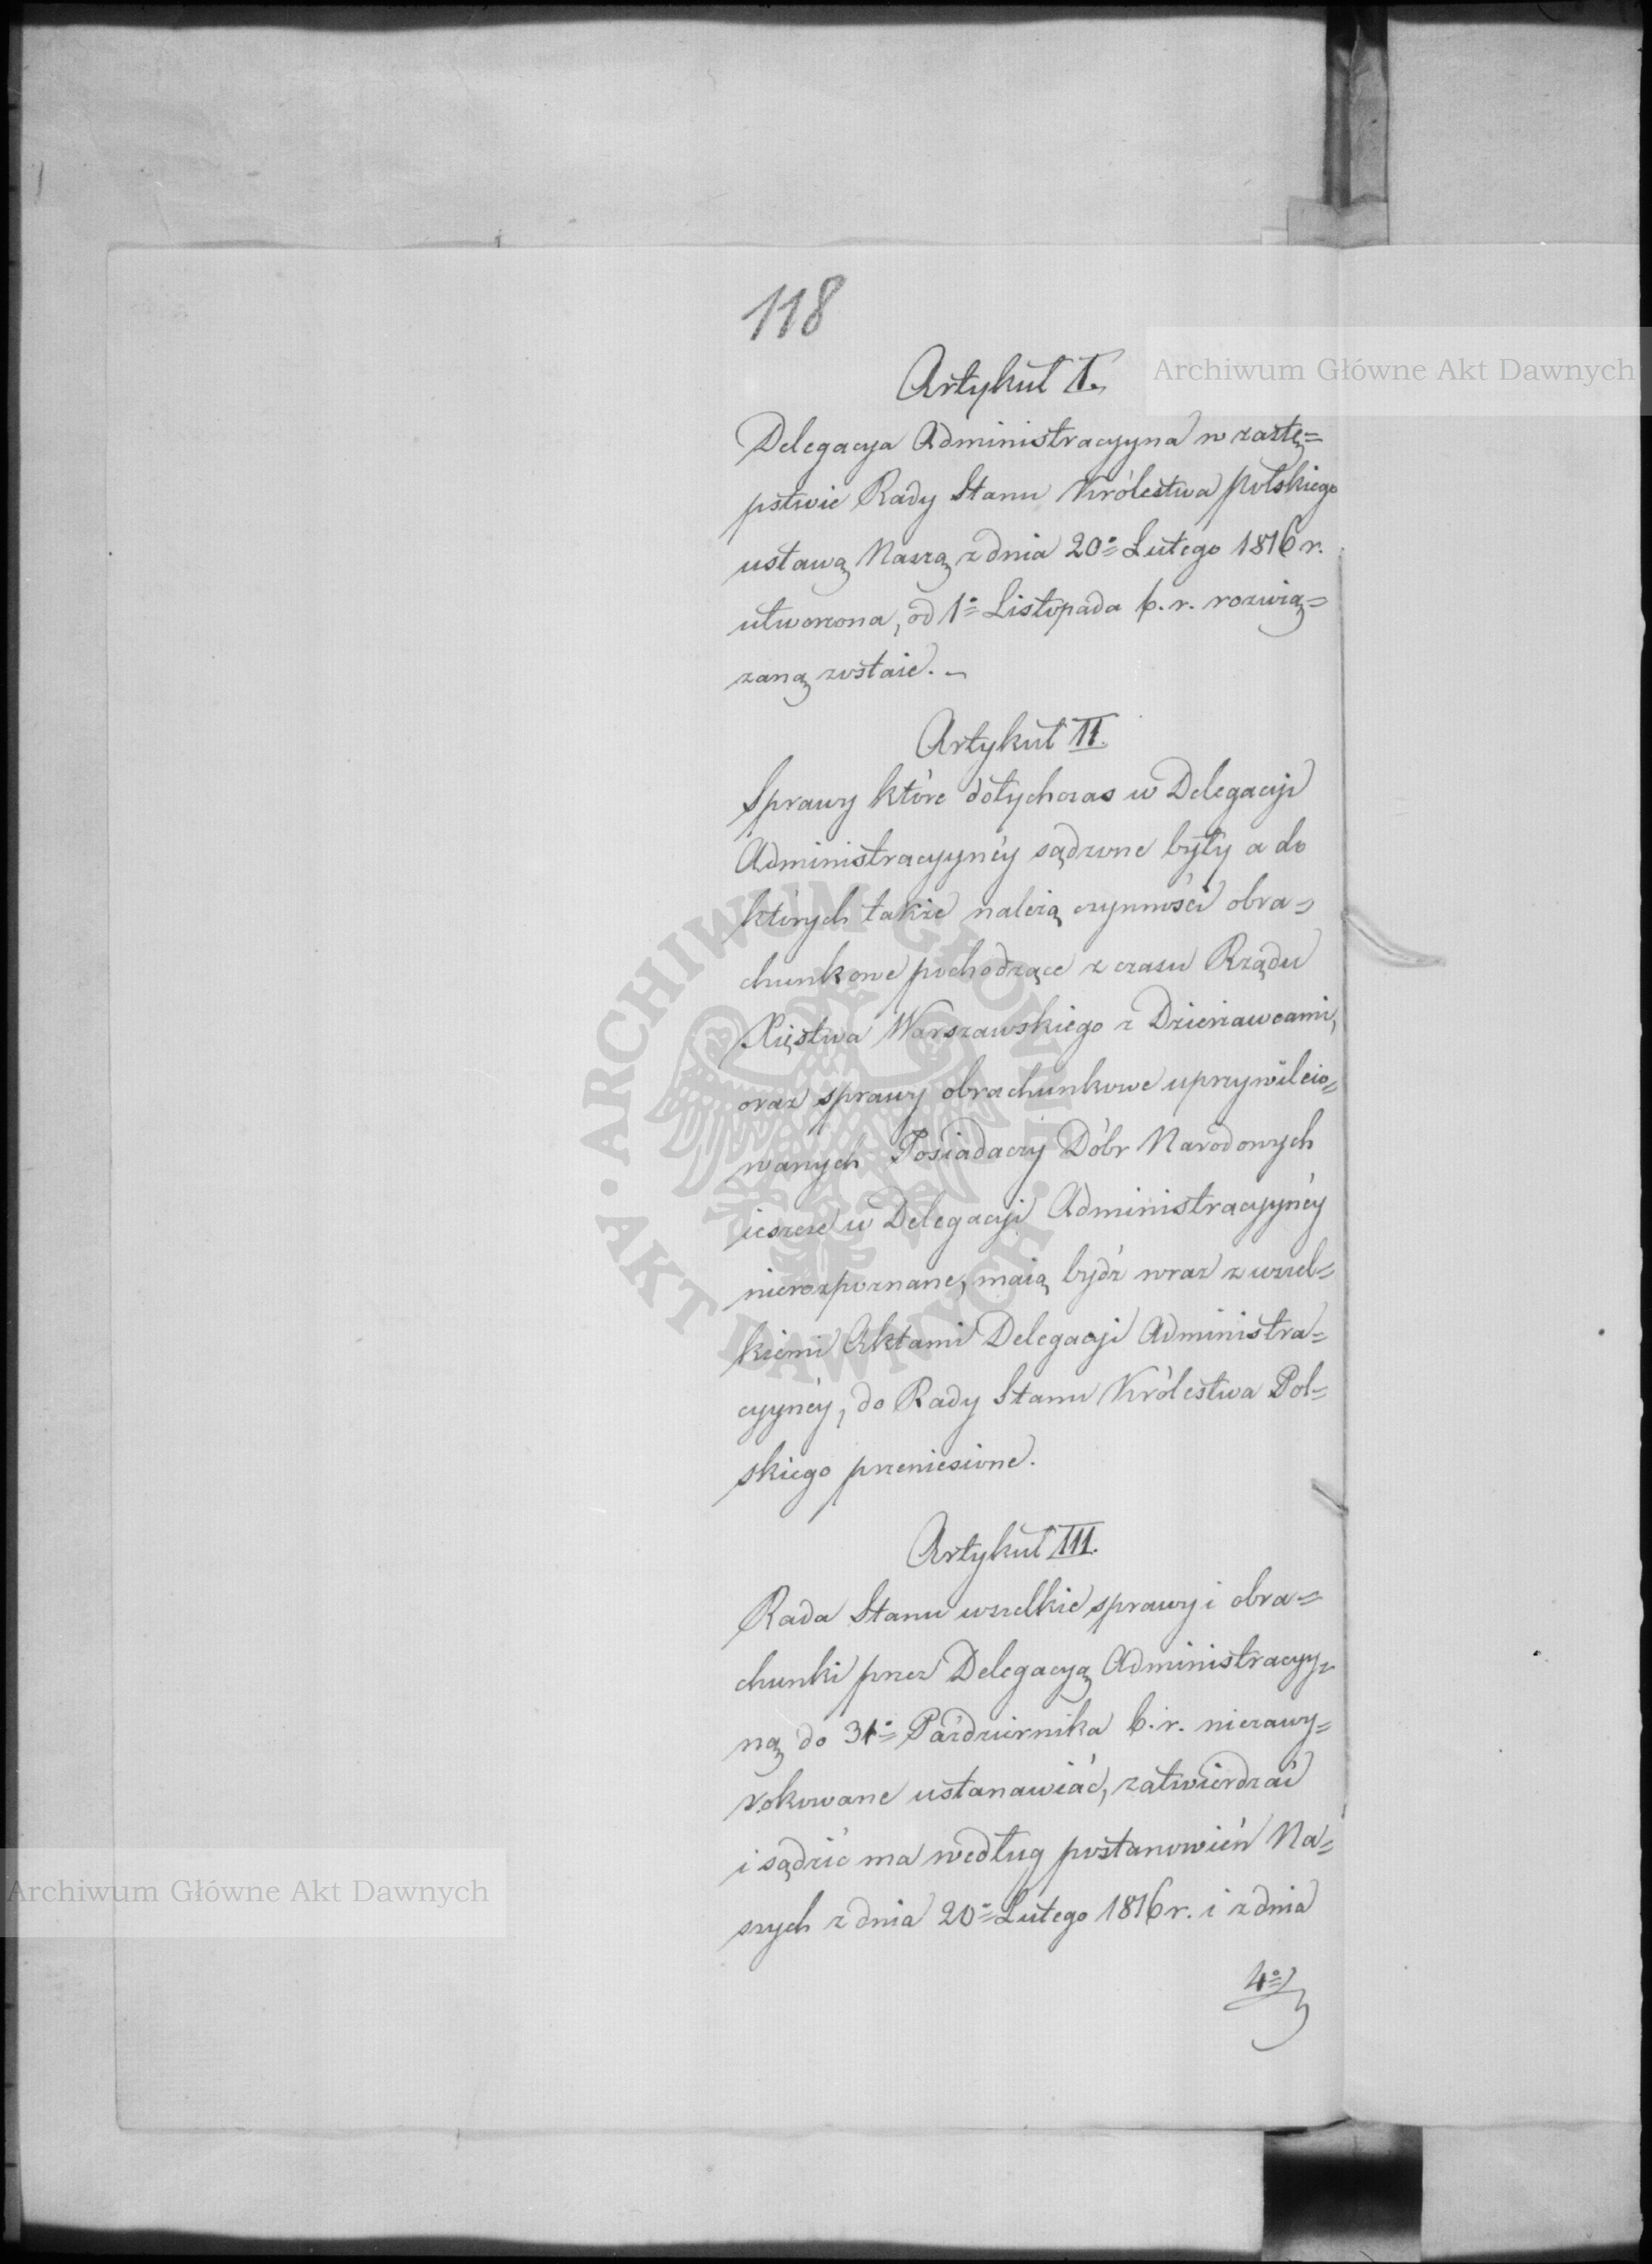 118
Artykuł I.
Archiwum Główne Akt Dawnych
Delegacya Administracyyna w zastę=
pstwie Rady Stanu Królestwa Polskiego
ustawą Naszą z dnia 20º Lutego 1816 r.
utworzona, od 1º Listopada b. r. rozwią=
zaną zostaie. –
Artykuł II.
Sprawy które dotychczas w Delegacyi
Administracyynéy sądzone były a do
których także należą czynności obra=
chunkowe pochodzące z czasu Rządu
Xięstwa Warszawskiego z Dzierżawcami,
oraz sprawy obrachunkowe uprzywileio=
wanych Posiadaczy Dóbr Narodowych
ieszcze w Delegacyi Administracyynéy
nierozpoznane, maią bydź wraz z wszel=
kiemi Aktami Delegacyi Administra=
cyynéy, do Rady Stanu Królestwa Pol=
skiego przeniesione.
ARCHIWUM GŁÓWNE · AKT DAWNYCH ·
Artykuł III.
Rada Stanu wszelkie sprawy i obra=
chunki przez Delegacyą Administracyy=
ną do 31º Października b. r. niezawy=
rokowane ustanawiać, zatwierdzać
i sądzić ma według postanowień Na=
szych z dnia 20º Lutego 1816 r. i z dnia
4º
Archiwum Główne Akt Dawnych